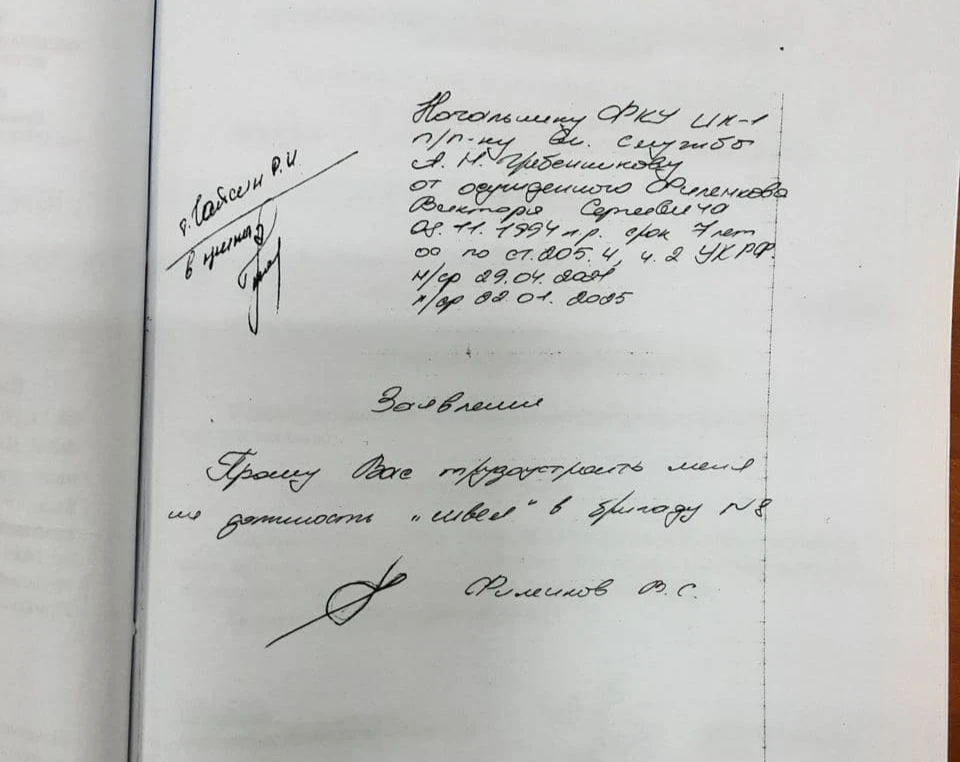 Начальнику ФКУ ИК-1
п/п-ку вн. службы
А. Н. Гребенщикову
от осужденного Филинкова
Виктора Сергеевича
08.11.1994 г.р. срок 7 лет
оо по ст. 205.4, ч. 2 УК РФ.
н/ср 29.04.2021
к/ср 22.01.2025
Гайсин Р.И.
в приказ
Заявление
Прошу Вас трудоустроить меня
на должность „швея" в бригаду N8
Филинков В. С.